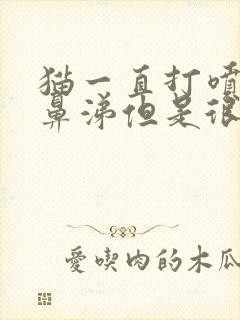 猫一直打喷
鼻涕但是很
愛喫肉的木瓜